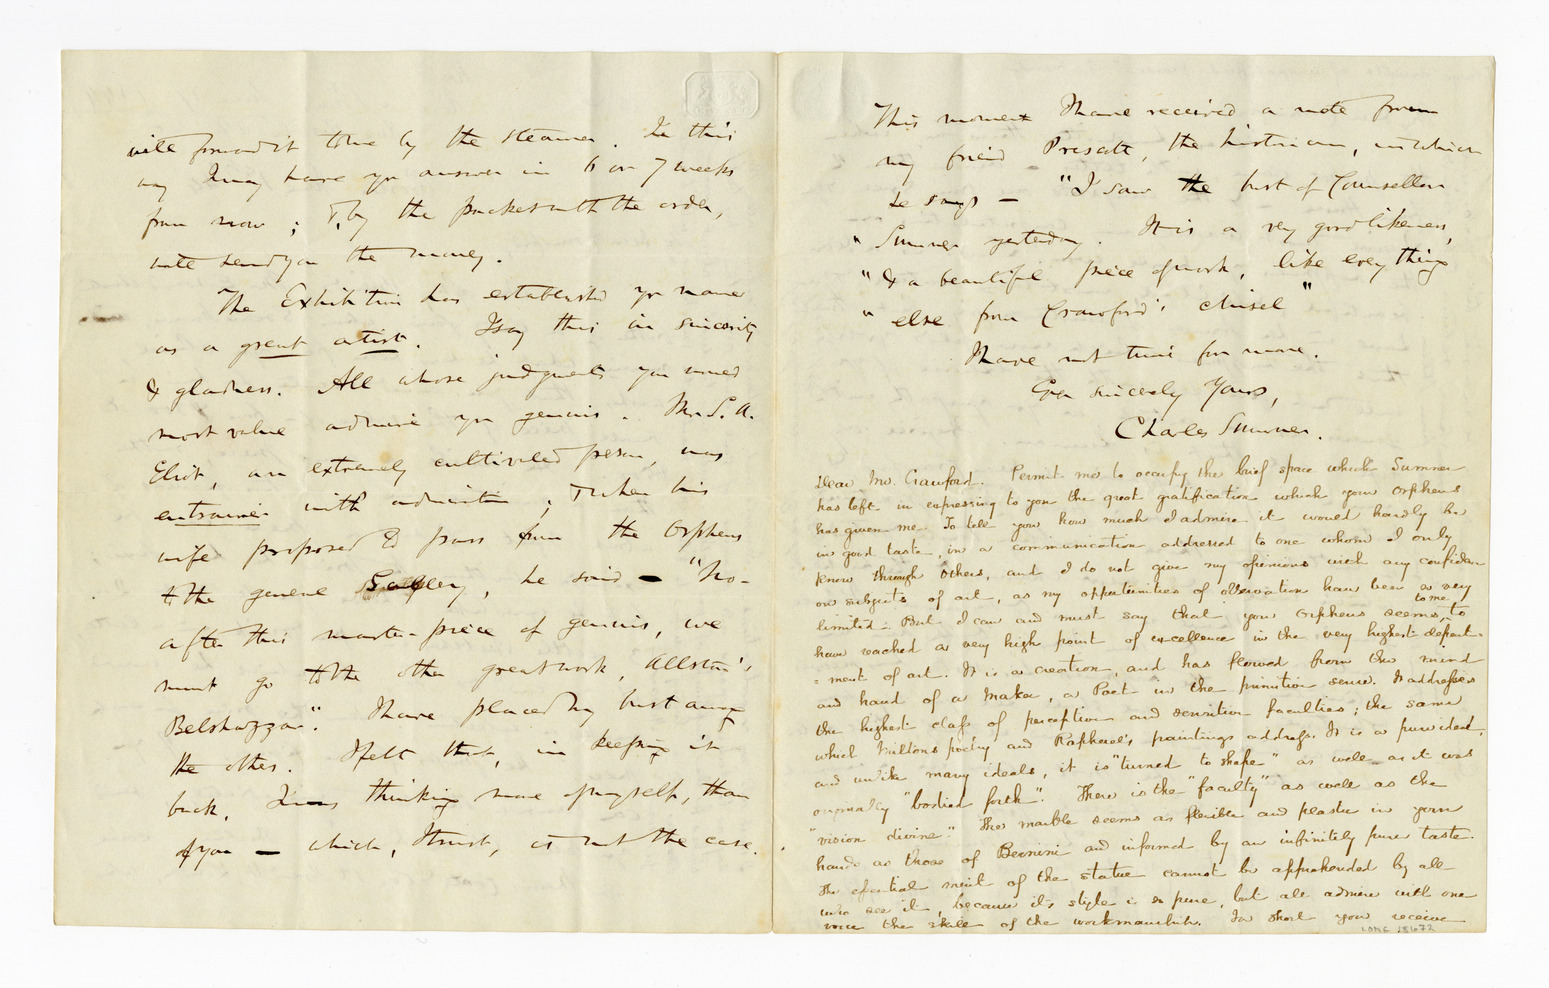 will forward it to me by the steamer. In this
way I may have yr answer in 6 or 7 weeks
from now; & by the packet with the order,
will send you the money.
The Exhibition has established yr name
as a great artist. I say this in sincerity
& gladness. All whose judgments you would
most value admire yr genius. Mr. S. A.
Eliot, an extremely cultivated person, was
entrainé with admiration; & when his
wife proposed to pass from the Orpheus
to the general Gallery, he said — "No—
after this master-piece of genius, we
must go to the other great work, Allston's
Belshazzar." I have placed my bust among
the others. I felt that, in keeping it
back, I was thinking more of myself, than
of you — which, I trust, is not the case.
This moment I have received a note from
my friend Prescott, the historian, in which
he says — "I saw the bust of Counsellor
" Sumner yesterday. It is a very good likeness,
" & a beautiful piece of work, like everything
" else from Crawford's chisel"
I have not time for more.
Ever sincerely Yours,
Charles Sumner.
Dear Mr. Crawford. Permit me to occupy the brief space which Sumner
has left in expressing to you the great gratification which your Orpheus
has given me. To tell you how much I admire it would hardly be
in good taste, in a communication addressed to one whom I only
know through others, and I do not give my opinions with any confidence
on subjects of art, as my opportunities of observation have been a very
limited. But I can and must say that your Orpheus seems to me to
have reached a very high point of excellence in the very highest depart-
=ment of art. It is a creation, and has flowed from the mind
and hand of a Maker, a Poet in the primitive sense. It addresses
the highest class of perceptive and sensitive faculties; the same
which Milton's poetry and Raphael's paintings address. It is a pure ideal,
and unlike many ideals, it is "turned to shape" as well as it was
originally "bodied forth". There is the "faculty" as well as the
"vision divine". The marble seems as flexible and plastic in your
hands as those of Bernini and informed by an infinitely pure taste.
The essential merit of the statue cannot be apprehended by all
who see it, because its style is so pure, but all admire with one
voice the skill of the workmanship. In short you receive
LONG 18672